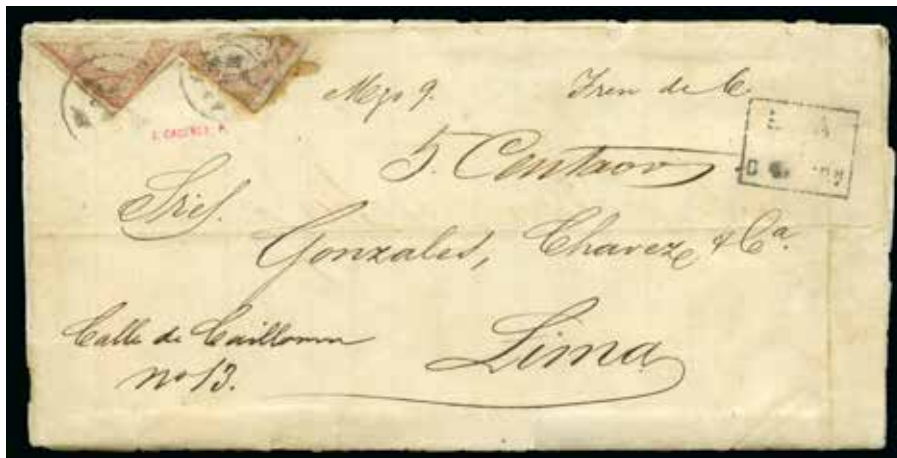 Myo 9. Tren de C.
5 Centavos
Sres.
Gonzales, Chavez & Ca.
Calle de Cailloma
no 13.
Lima